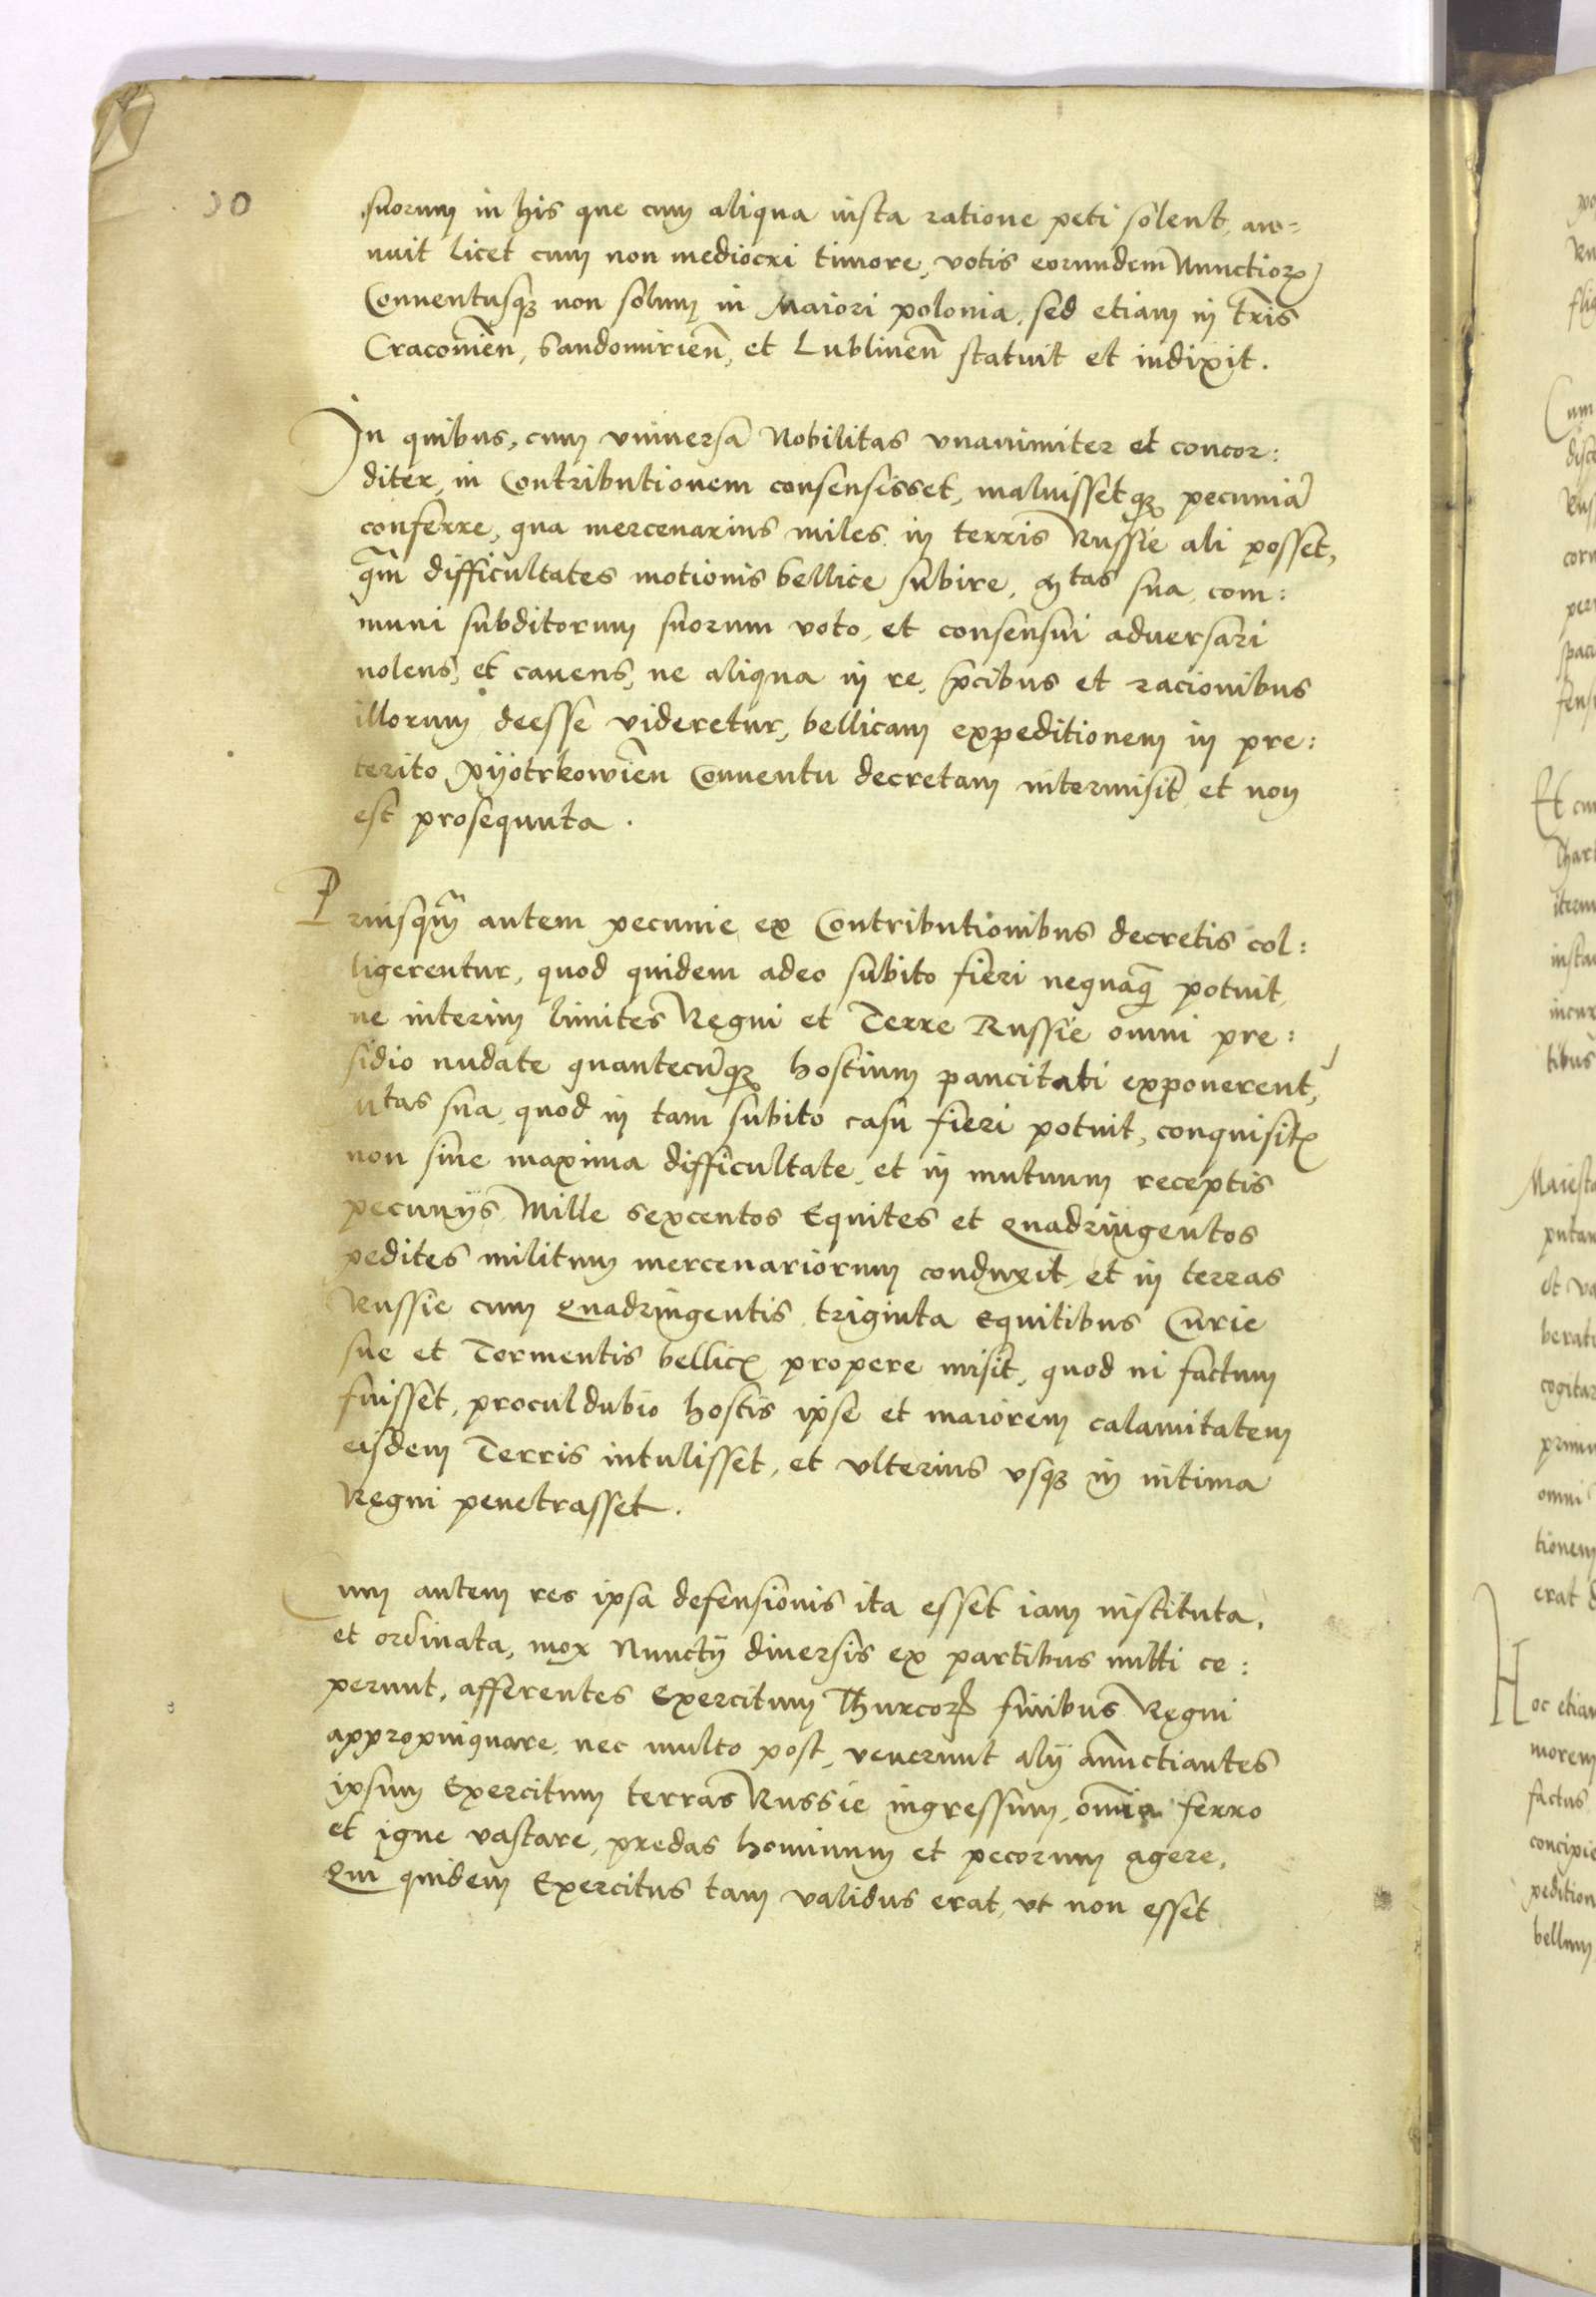 30
suorum in his que cum aliqua iusta ratione peti solent, an=
nuit licet cum non mediocri timore, votis eorundem Nunctioꝝ
Conuentusqꝫ non solum in Maiori polonia, sed etiam in tr̃is
Cracouieñ, Sandomirieñ, et Lublineñ statuit et indixit.
In quibus, cum vniuersa Nobilitas vnanimiter et concor:
diter, in Contributionem consensisset, maluissetqꝫ pecuniã
conferre, qua mercenarius miles in terris Russie ali posset,
q̃m difficultates motionis bellice subire, Mtas sua, com:
muni subditorum suorum voto, et consensui aduersari
nolens, et cauens, ne aliqua in re, p̃cibus et racionibus
illorum deesse videretur, bellicam expeditionem in pre:
terito pyotrkowieñ Conuentu decretam intermisit et non
est prosequuta.
Priusq̃m autem pecunie ex Contributionibus decretis col:
ligerentur, quod quidem adeo subito fieri nequaq̃ potuit,
ne interim limites Regni et Terre Russie omni pre:
sidio nudate quantecũqꝫ hostium paucitati exponerent,
Mtas sua, quod in tam subito casu fieri potuit, conquisitꝭ
non sine maxima difficultate, et in mutuum receptis
pecunijs Mille sexcentos Equites et Quadringentos
pedites militum mercenariorum conduxit, et in terras
Russie cum Quadringentis triginta Equitibus Curie
sue et Tormentis bellicꝭ propere misit, quod ni factum
fuisset, proculdubio hostis ipse et maiorem calamitatem
eisdem Terris intulisset, et vlterius vsqꝫ in intima
Regni penetrasset.
Cum autem res ipsa defensionis ita esset iam instituta,
et ordinata, mox Nunctij diuersis ex partibus mitti ce:
perunt, afferentes Exercitum Thurcoꝝ finibus Regni
appropinquare, nec multo post, venerunt alij añunctiantes
ipsum Exercitum terras Russie ingressum, omnia ferro
et igne vastare, predas hominum et pecorum agere,
Qui quidem Exercitus tam validus erat, vt non esset